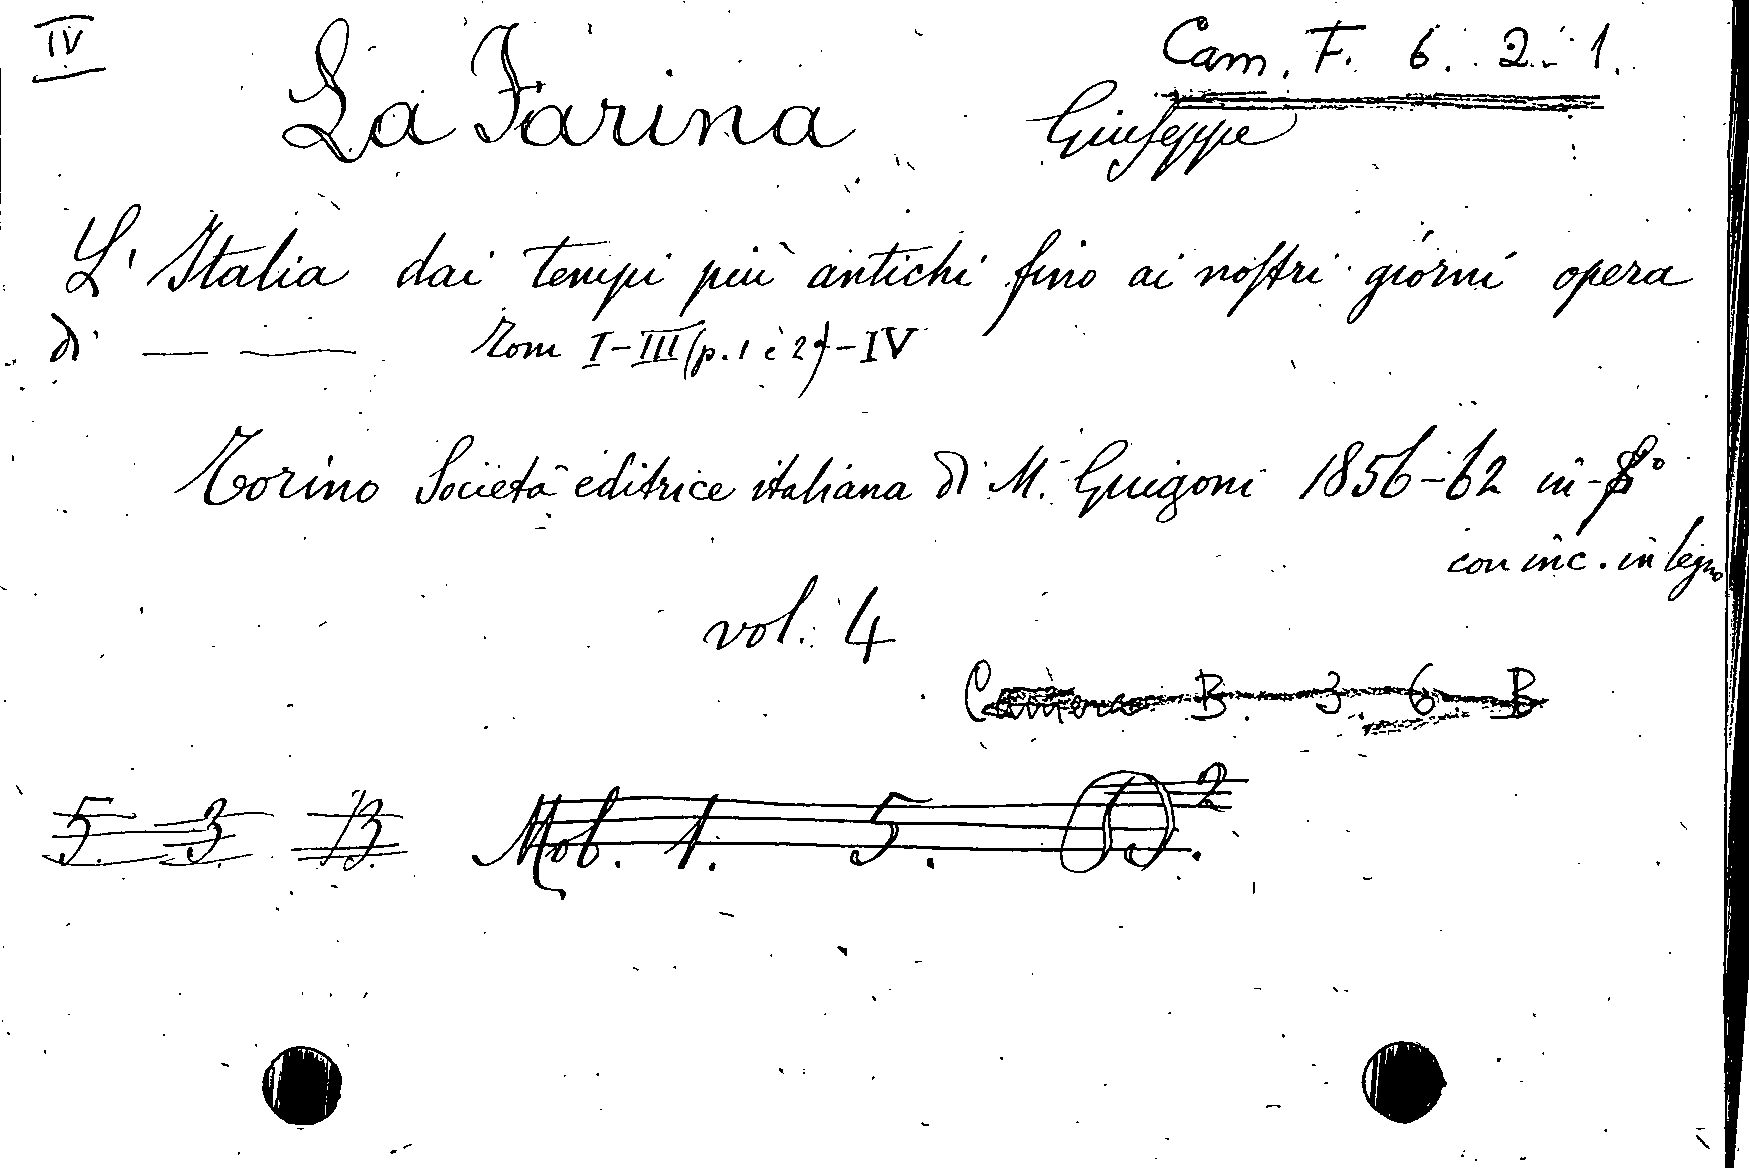 IV
Cam. F. 6. 2. 1.
La Farina Giuseppe
L'Italia dai tempi più antichi fino ai nostri giorni opera
di — — Tom I-III (p. 1 e 2ª) - IV
Torino Società editrice italiana di M. Guigoni 1856-62 in-8°
con inc. in legno
vol. 4
Camera B. 3. 6 B
5. 3. B. Mob. 1. 5. D².